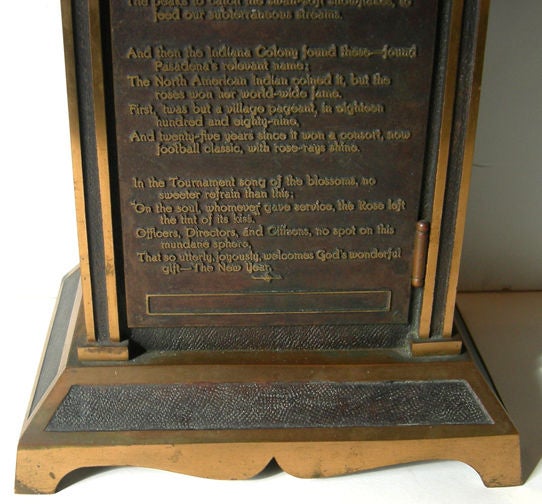 The peaks to catch the swan-soft snowflakes, to
feed our subterraneous streams.
And then the Indiana Colony found these—found
Pasadena's relevant name;
The North American Indian coined it, but the
roses won her world-wide fame.
First, 'twas but a village pageant, in eighteen
hundred and eighty-nine,
And twenty-five years since it won a consort, now
football classic, with rose-rays shine.
In the Tournament song of the blossoms, no
sweeter refrain than this:
"On the soul, whomever gave service, the Rose left
the tint of its kiss,
Officers, Directors, and Citizens, no spot on this
mundane sphere,
That so utterly, joyously, welcomes God's wonderful
gift—The New Year.